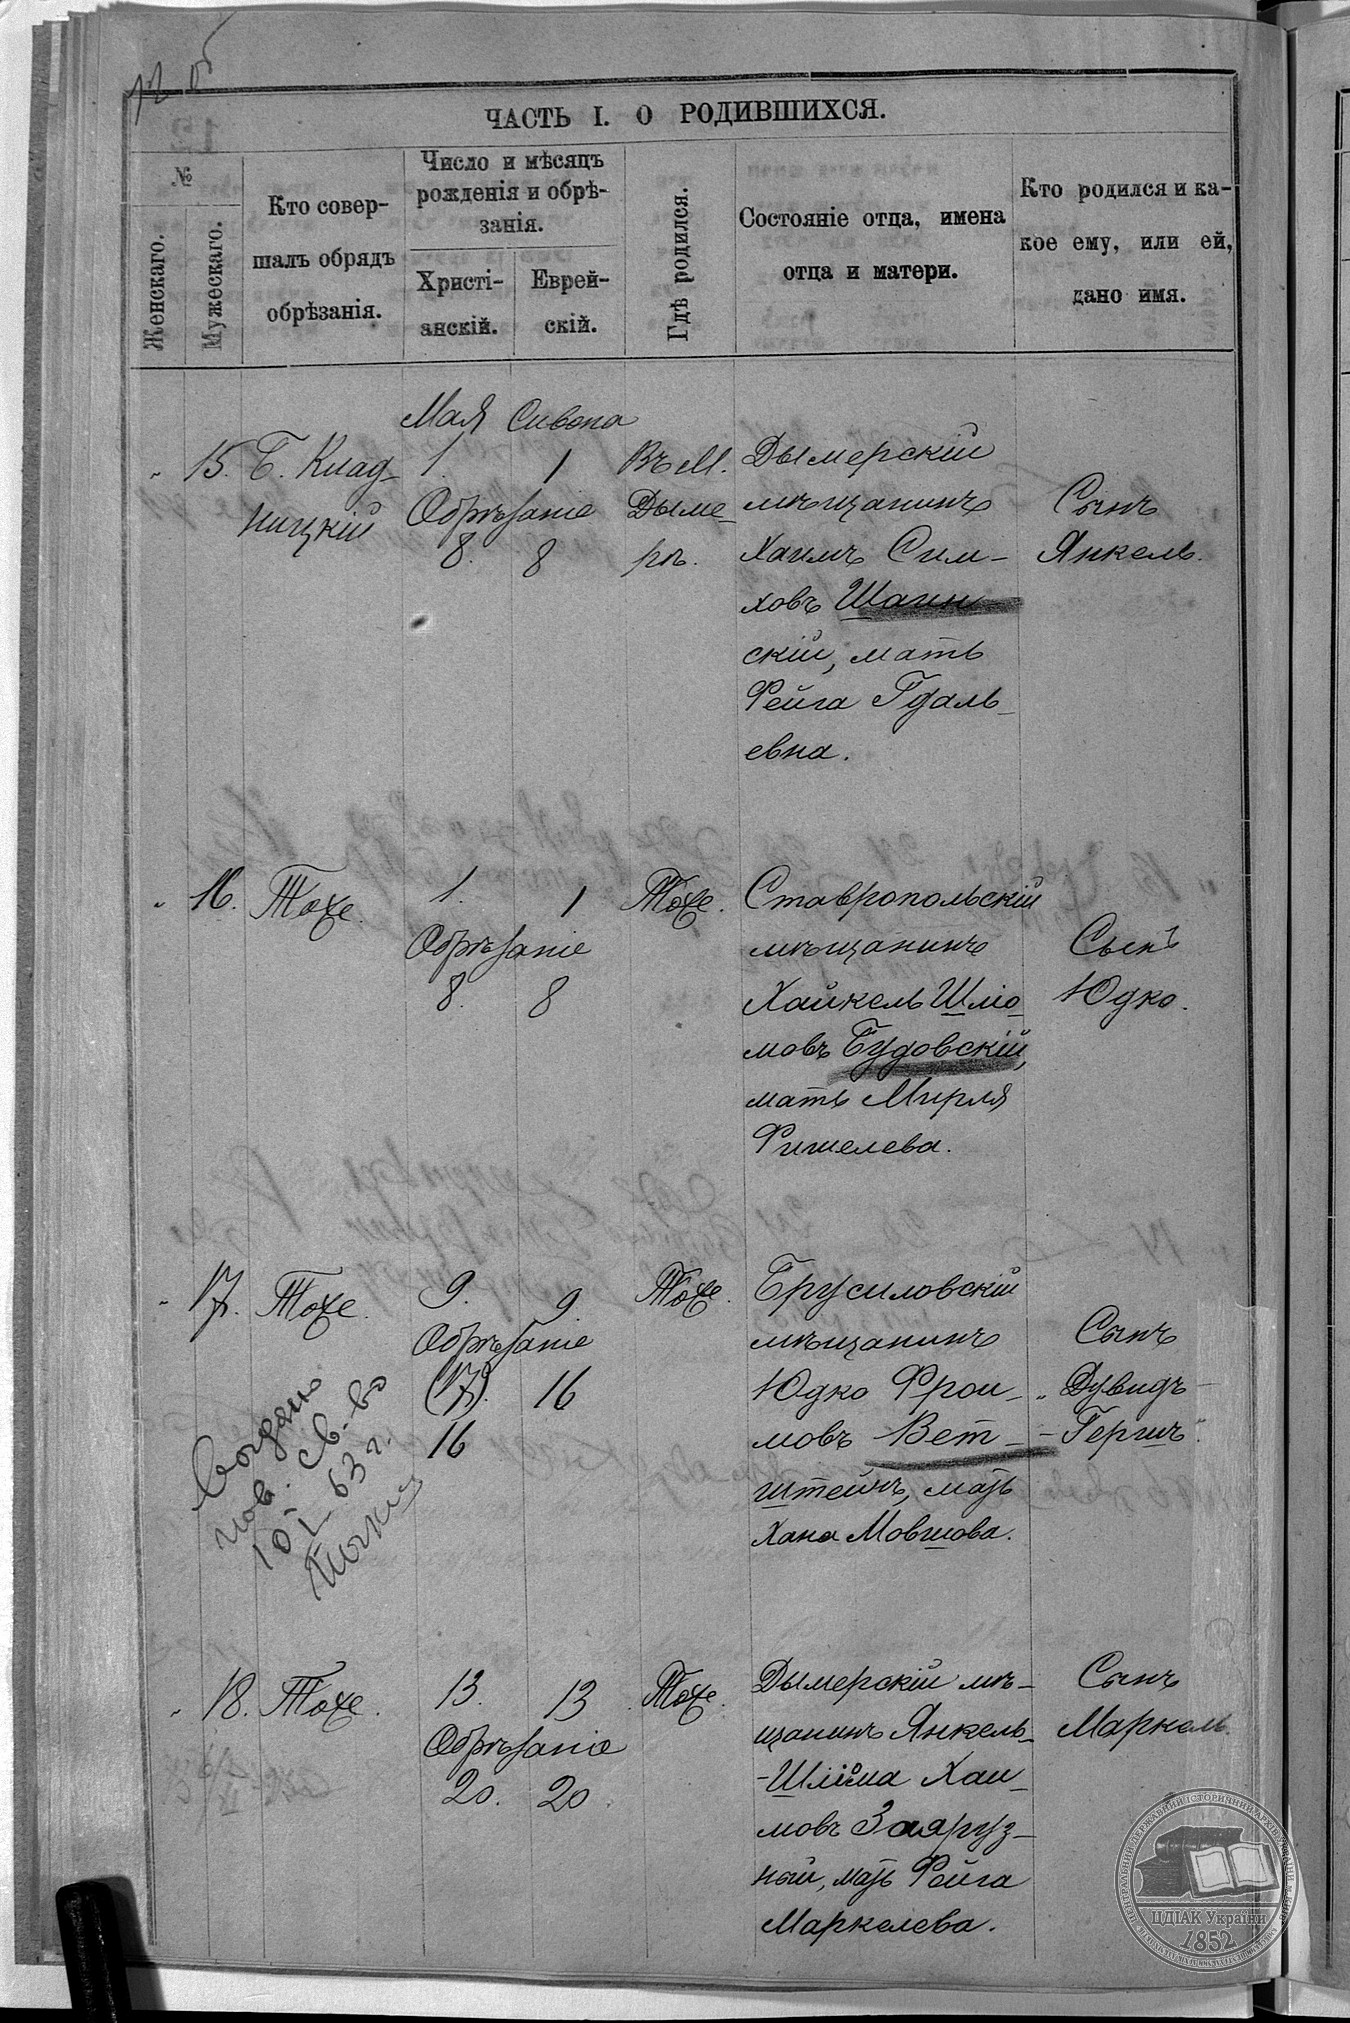 12 об
ЧАСТЬ I. О РОДИВШИХСЯ.
№
Женскаго.
Мужескаго.
Кто совер-
шалъ обрядъ
обрѣзанія.
Число и мѣсяцъ
рожденія и обрѣ-
занія.
Христі-
анскій.
Еврей-
скій.
Гдѣ родился.
Состояніе отца, имена
отца и матери.
Кто родился и ка-
кое ему, или ей,
дано имя.
Мая Сивона
15. Б. Клад-
ницкій
1. 1
Обрѣзаніе
8. 8
Въ М.
Дыме-
рѣ.
Дымерскій
мѣщанинъ
Хаимъ Сим-
ховъ Шаин-
скій, мать
Фейга Гдаль-
евна.
Сынъ
Янкель.
16. Тоже.
1. 1
Обрѣзаніе
8. 8
Тоже.
Ставропольскій
мѣщанинъ
Хайкель Шліо-
мовъ Будовскій,
мать Мирля
Фишелева.
Сынъ
Юдко.
17. Тоже.
9. 9
Обрѣзаніе
(17). 16
16
Тоже.
Брусиловскій
мѣщанинъ
Юдко Фрои-
мовъ Вет-
штейнъ, мать
Хана Мовшова.
Сынъ
„Дувидъ-
-Гершъ".
Выдано
пов. св-во
10 I 63 г.
18. Тоже.
13. 13
Обрѣзаніе
20. 20
Тоже.
Дымерскій мѣ-
щанинъ Янкель-
-Шліома Хаи-
мовъ Заяруз-
ный, мать Фейга
Маркелева.
Сынъ
Маркель.
ЦДІАК України
1852